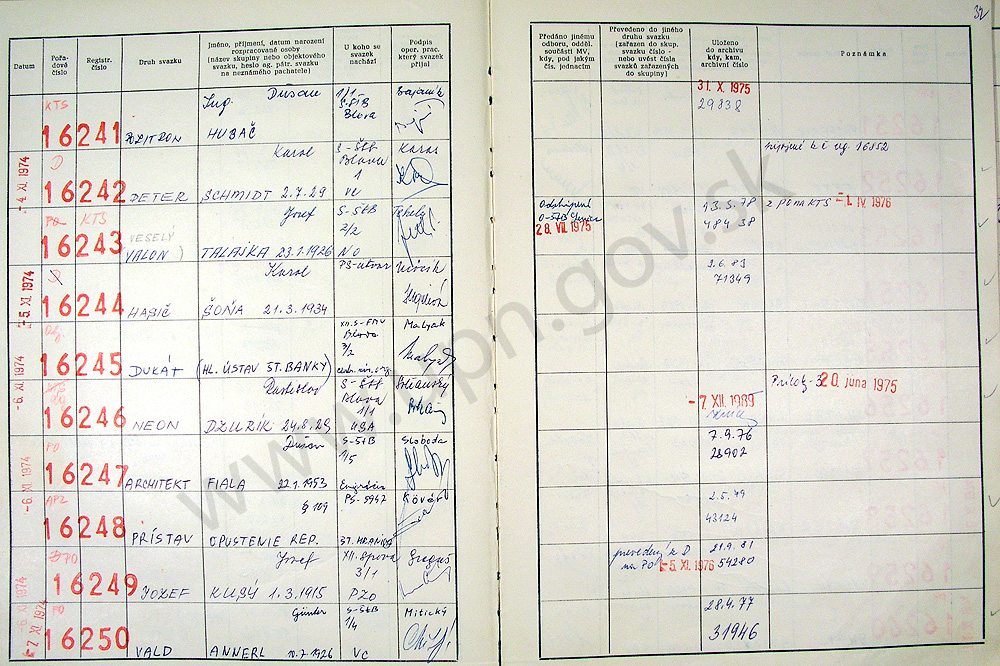 32
Datum
Pořadové číslo
Registr. číslo
Druh svazku
Jméno, příjmení, datum narození rozpracované osoby (název skupiny nebo objektového svazku, heslo ag. pátr. svazku na neznámého pachatele)
U koho se svazek nachází
Podpis oper. prac. který svazek přijal
Předáno jinému odboru, odděl. součásti MV, kdy, pod jakým čís. jednacím
Převedeno do jiného druhu svazku (zařazen do skup. svazku číslo - nebo uvést čísla svazků zařazených do skupiny)
Uloženo do archivu kdy, kam, archivní číslo
Poznámka
KTS
16241
Ing. Dušan
HUBAČ
1/1
S-ŠtB
Blava
31. X. 1975
29838
-4. XI. 1974
16242
PETER
Karol
SCHMIDT 2.7.29
S-ŠtB
Blava
1
VC
Karas
KTS
16243
VESELÝ
VALON
Jozef
TALAJKA 23.1.1926
S-ŠtB
2/2
NO
28. VII. 1975
13.5.78
48438
z PO na KTS -1. IV. 1976
-5. XI. 1974
16244
HASIČ
Karol
ŠOŇA 21.3.1934
9.6.83
71349
16245
DUKÁT
(HL. ÚSTAV ŠT. BANKY)
Blava
3/2
Malyak
-6. XI. 1974
16246
NEON
Rastislav
DZURÍK 24.8.29
S-ŠtB
Blava
1/1
USA
-7. XII. 1989
20. júna 1975
PO
16247
ARCHITEKT
Dušan
FIALA 22.1.1953
S-ŠtB
1/5
Sloboda
7.9.76
28902
-6. XI. 1974
APZ
16248
PRÍSTAV
§ 109
OPUSTENIE REP.
PS-5947
ST. HRANICE
Kovář
2.5.79
43124
PO
16249
JOZEF
Jozef
KUBÝ 1.3.1915
3/1
PZO
Greguš
prevedený z
na PO -5. XI. 1976
21.9.81
54280
-6. XI. 1974
-7. XI. 1974
PO
16250
VALD
Günter
ANNERL 10.7.1926
S-ŠtB
1/4
VC
Mitický
28.4.77
31946
www.upn.gov.sk